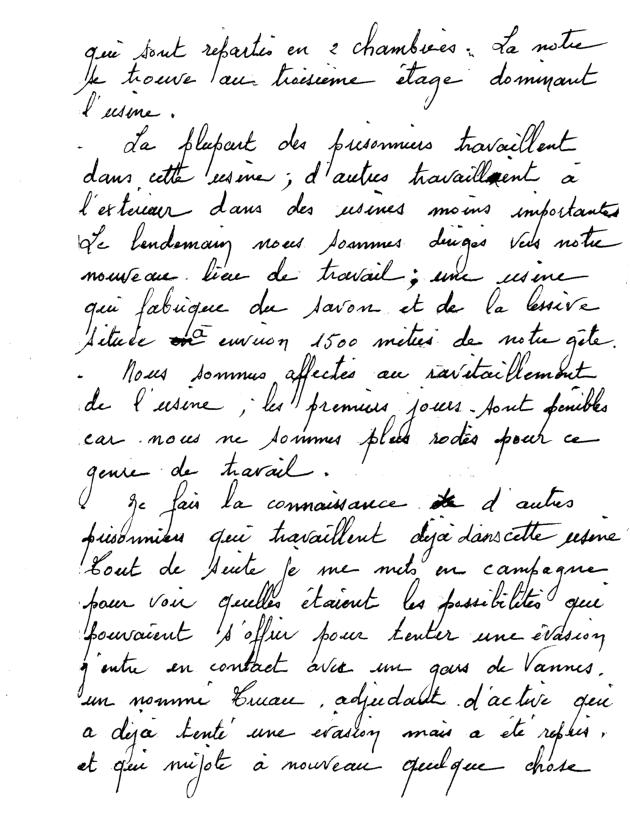 qui sont répartis en 2 chambrées. La notre
se trouve au troisième étage dominant
l'usine.
- La plupart des prisonniers travaillent
dans cette usine ; d'autres travaillent à
l'exterieur dans des usines moins importantes
Le lendemain nous sommes dirigés vers notre
nouveau lieu de travail ; une usine
qui fabrique du savon et de la lessive
située à environ 1500 mètres de notre gîte.
- Nous sommes affectés au ravitaillement
de l'usine ; les premiers jours sont pénibles
car nous ne sommes plus rodés pour ce
genre de travail.
- Je fais la connaissance d'autres
prisonniers qui travaillent déjà dans cette usine
Tout de suite je me mets en campagne
pour voir quelles étaient les possibilités qui
pouvaient s'offrir pour tenter une évasion
j'entre en contact avec un gars de Vannes,
un nommé adjudant d'active qui
a déjà tenté une evasion mais a été repris,
et qui mijote à nouveau quelque chose